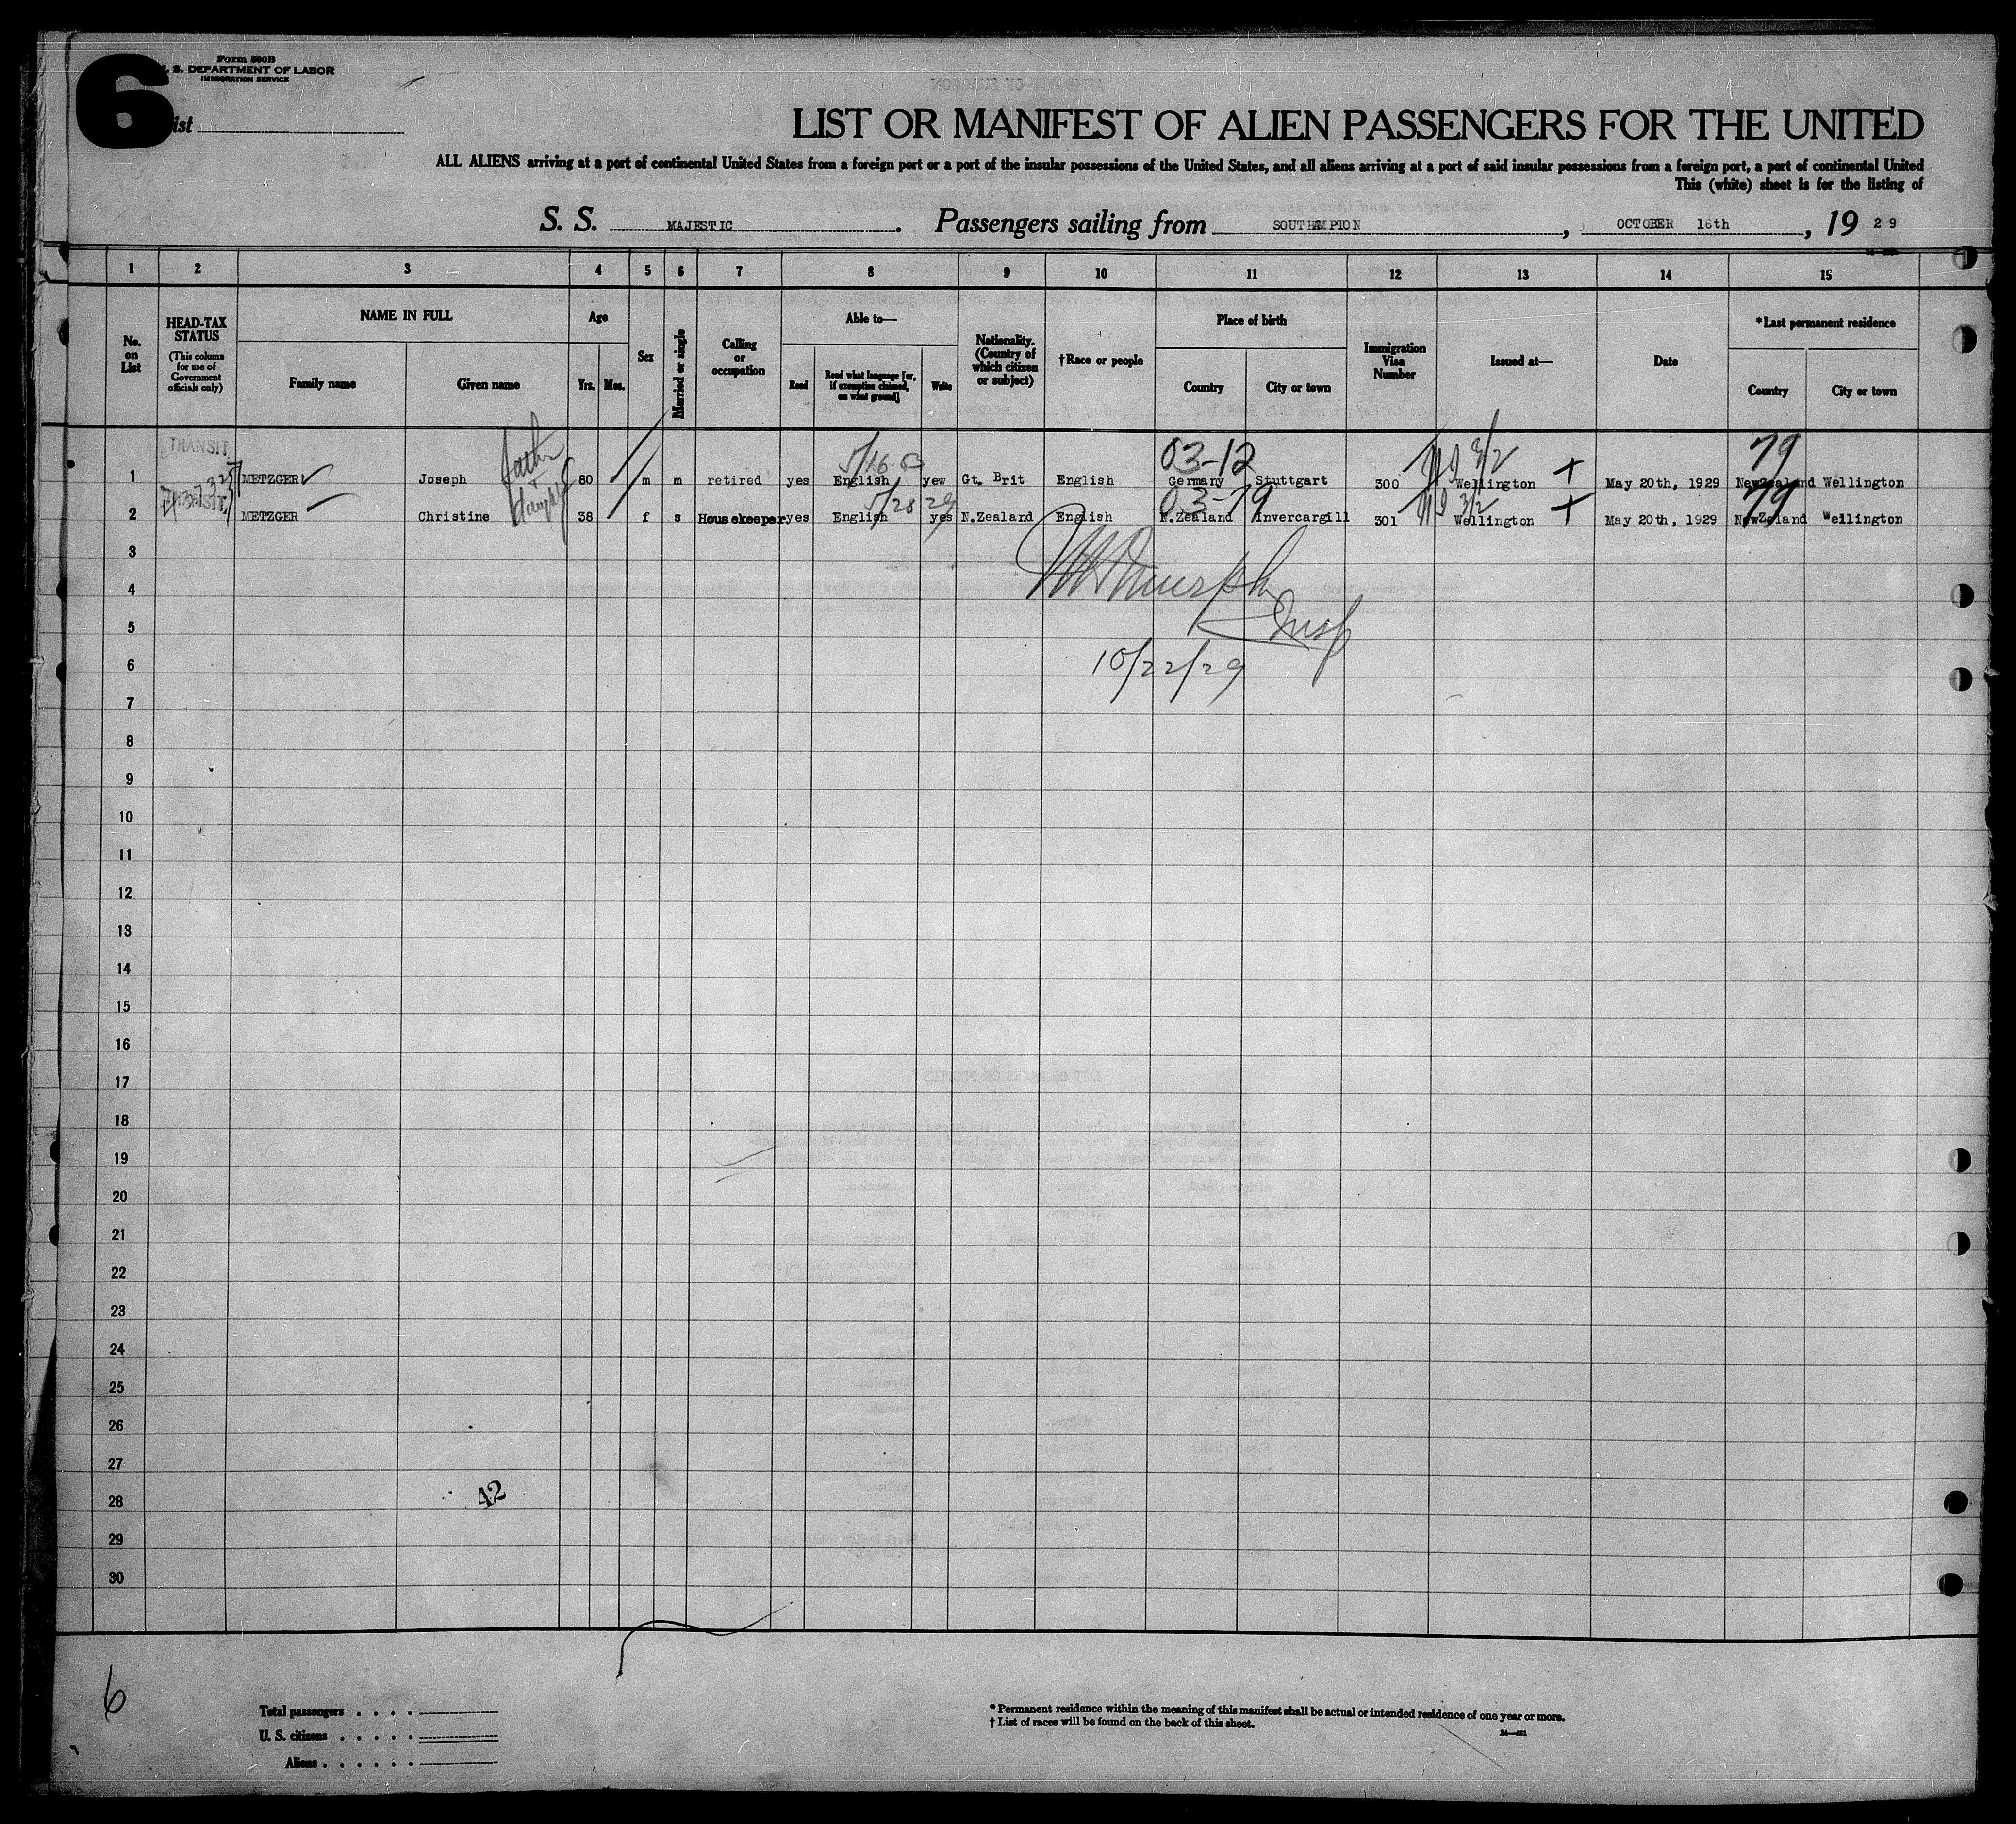 6
Form 500B
U. S. DEPARTMENT OF LABOR
IMMIGRATION SERVICE
List
LIST OR MANIFEST OF ALIEN PASSENGERS FOR THE UNITED
ALL ALIENS arriving at a port of continental United States from a foreign port or a port of the insular possessions of the United States, and all aliens arriving at a port of said insular possessions from a foreign port, a port of continental United
This (white) sheet is for the listing of
S. S. MAJESTIC . Passengers sailing from SOUTHAMPTON , OCTOBER 16th , 19 29
1 2 3 4 5 6 7 8 9 10 11 12 13 14 15
No. on List
HEAD-TAX STATUS (This column for use of Government officials only)
NAME IN FULL
Family name Given name
Age
Yrs. Mos.
Sex
Married or single
Calling or occupation
Able to—
Read Read what language [or, if exemption claimed, on what ground] Write
Nationality. (Country of which citizen or subject)
†Race or people
Place of birth
Country City or town
Immigration Visa Number
Issued at—
Date
*Last permanent residence
Country City or town
TRANSIT father 5/16 03-12 79
1 METZGER Joseph 80 m m retired yes English yew Gt. Brit English Germany Stuttgart 300 Wellington May 20th, 1929 NewZealand Wellington
daught 5/28 29 03-79 3/2 79
2 METZGER Christine 38 f s Housekeeper yes English yes N.Zealand English N.Zealand Invercargill 301 Wellington May 20th, 1929 NewZeland Wellington
3
4
Insp
5
10/22/29
6
7
8
9
10
11
12
13
14
15
16
17
18
19
20
21
22
23
24
25
26
27
28
42
29
30
6
Total passengers . . . .
U. S. citizens . . . . .
Aliens . . . . . .
* Permanent residence within the meaning of this manifest shall be actual or intended residence of one year or more.
† List of races will be found on the back of this sheet.